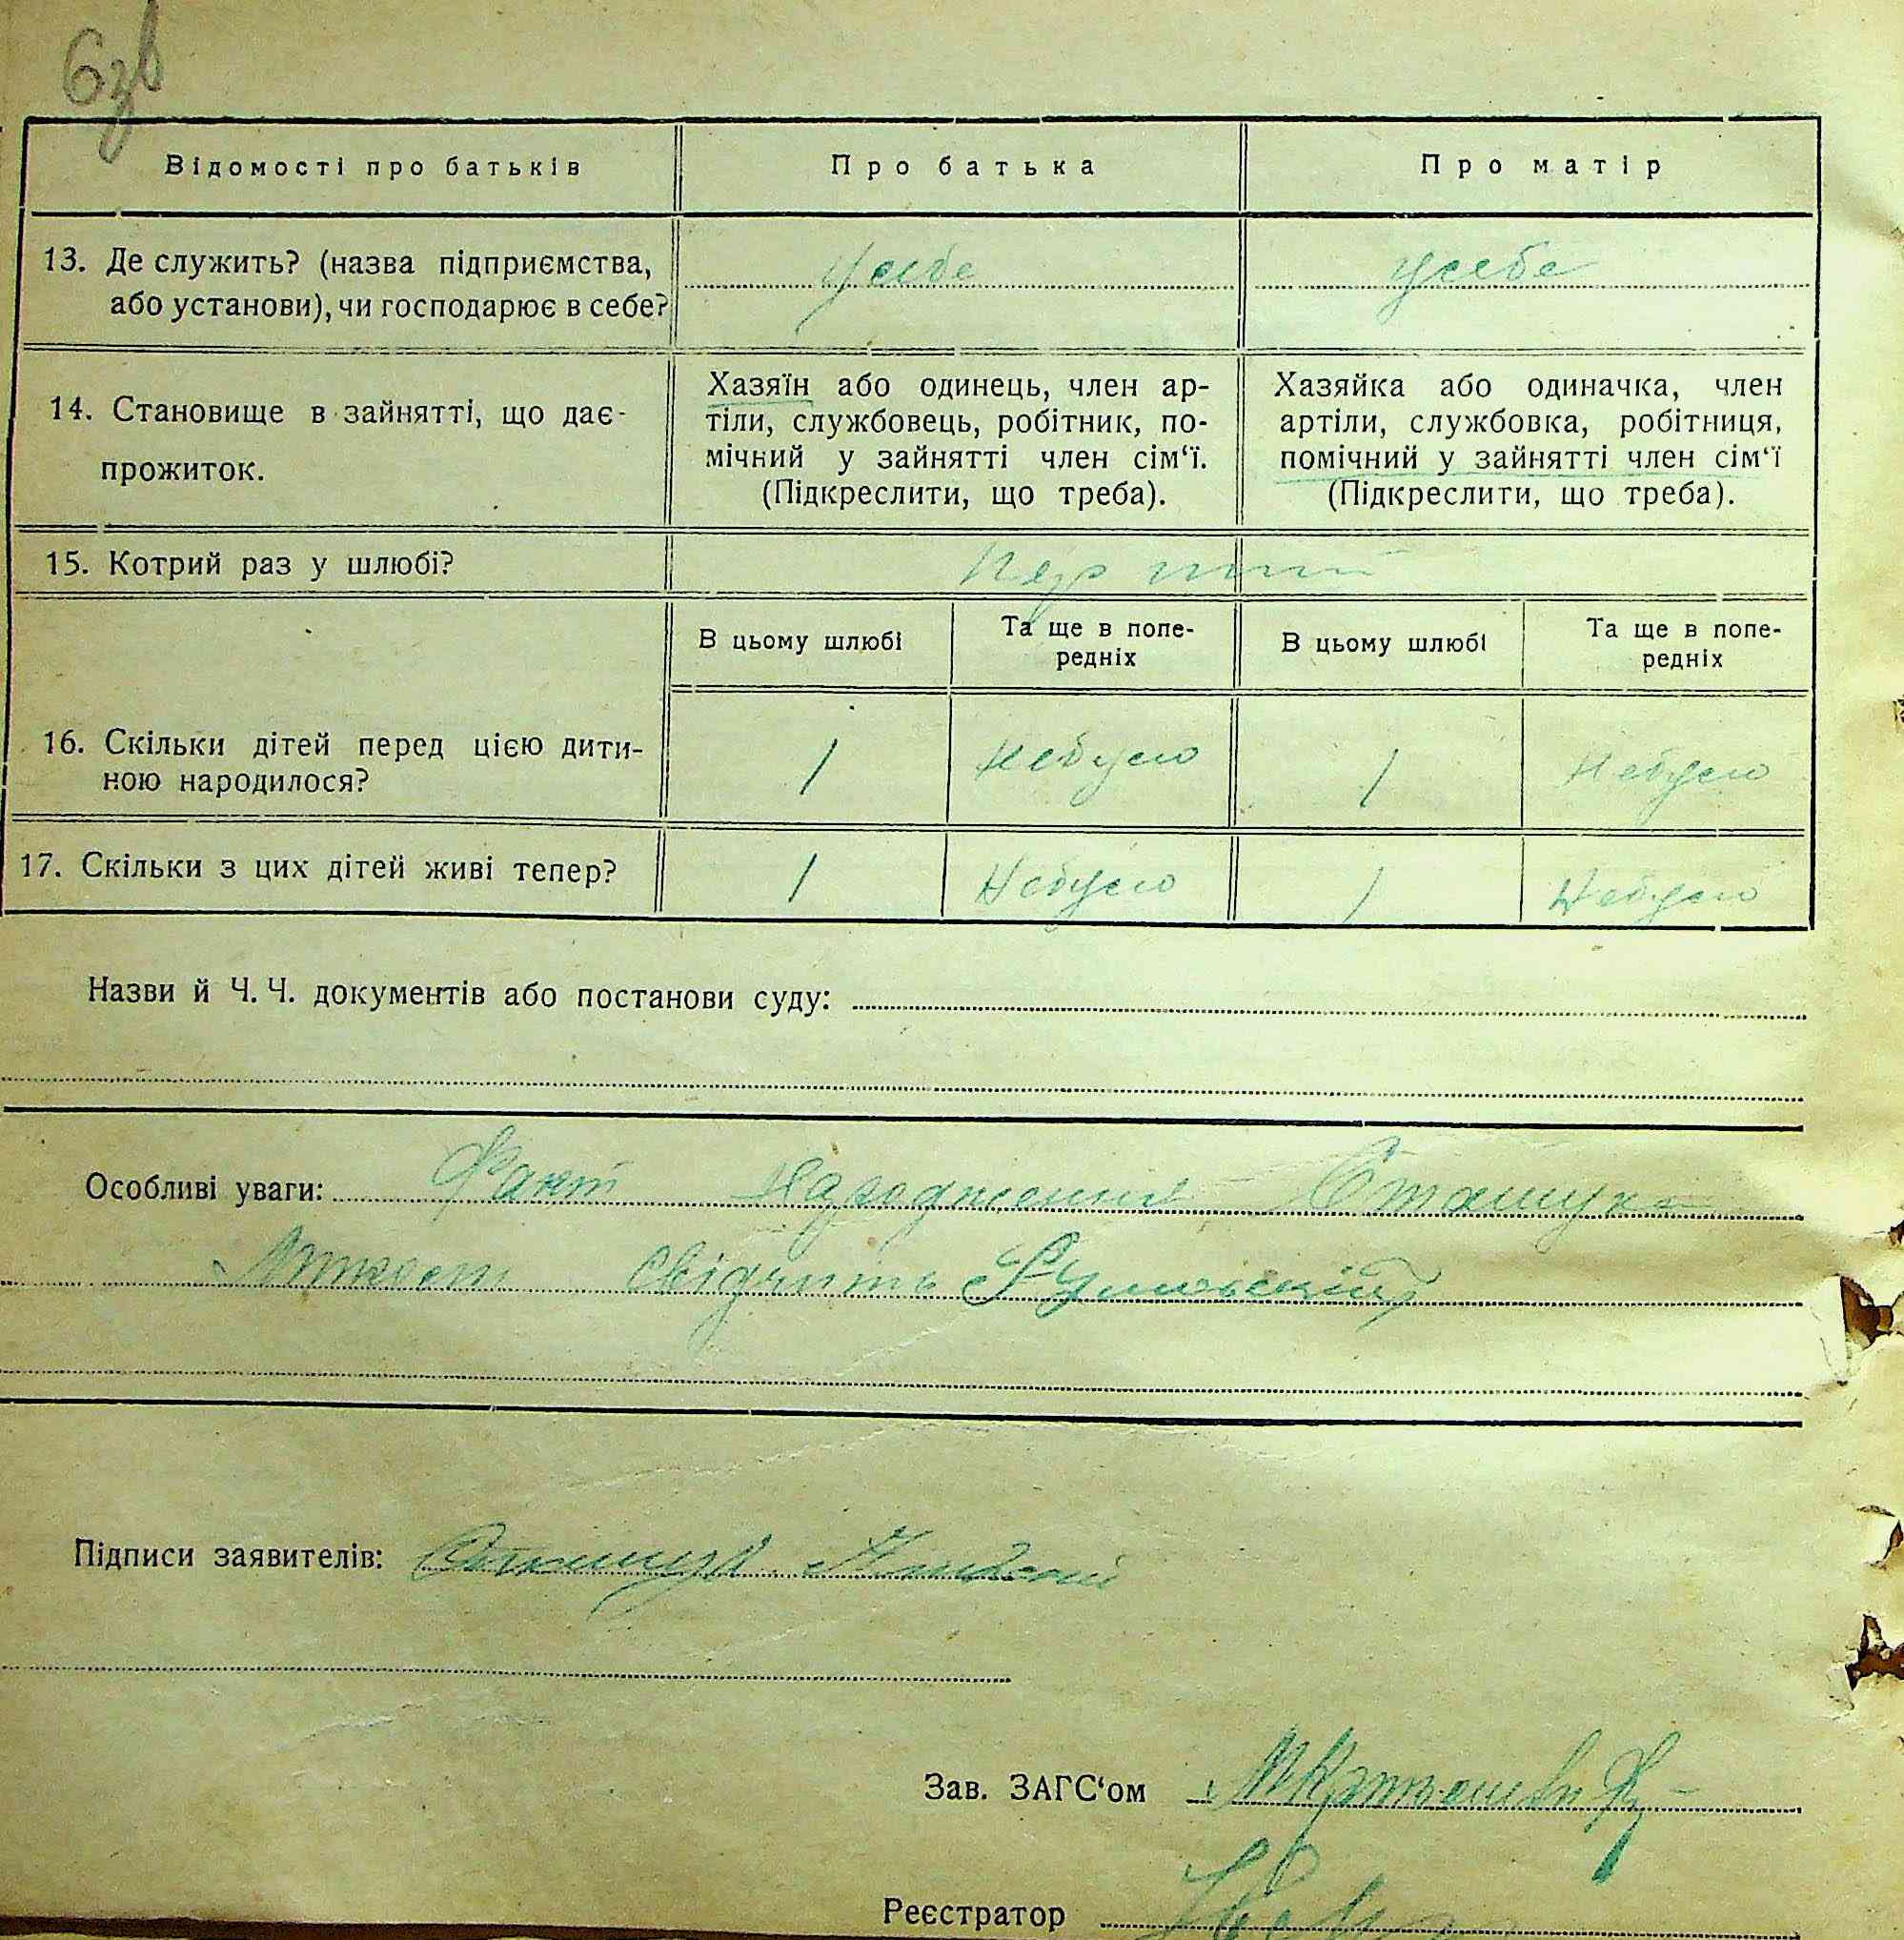 6зв
Відомості про батьків
Про батька
Про матір
13. Де служить? (назва підприємства,
або установи), чи господарює в себе?
усебе
усебе
14. Становище в зайнятті, що дає
прожиток.
Хазяїн або одинець, член ар-
тіли, службовець, робітник, по-
мічний у зайнятті член сім‘ї.
(Підкреслити, що треба).
Хазяйка або одиначка, член
артіли, службовка, робітниця,
помічний у зайнятті член сім‘ї
(Підкреслити, що треба).
15. Котрий раз у шлюбі?
В цьому шлюбі
Та ще в попе-
редніх
В цьому шлюбі
Та ще в попе-
редніх
16. Скільки дітей перед цією дити-
ною народилося?
1
Небуло
1
Небуло
17. Скільки з цих дітей живі тепер?
1
Небуло
1
Небуло
Назви й Ч. Ч. документів або постанови суду:
Особливі уваги: Факт народження Сташука
свідчить
Підписи заявителів: Сташук
Зав. ЗАГС‘ом
Реєстратор